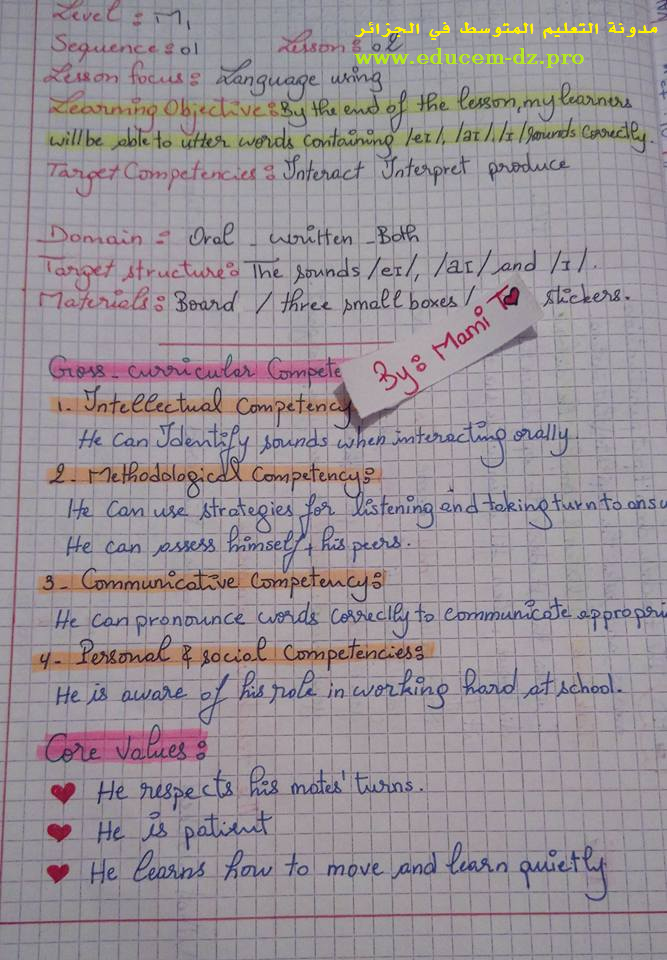 Level : M1
مدونة التعليم المتوسط في الجزائر
Sequence : 01 Lesson : 02
www.educem-dz.pro
Lesson focus : Language using
Learning Objective : By the end of the lesson, my learners
will be able to utter words containing /eɪ/, /aɪ/, /ɪ/ sounds correctly.
Target Competencies : Interact Interpret produce
Domain : Oral _ written _ Both
Target structure : The sounds /eɪ/, /aɪ/ and /ɪ/.
Materials : Board / three small boxes / stickers.
By : Mami T
Cross - curricular Compete
1. Intellectual Competency
He can Identify sounds when interacting orally.
2 - Methodological Competency :
He can use strategies for listening and taking turn to answ
He can assess himself + his peers.
3 - Communicative Competency :
He can pronounce words correctly to communicate appropri
4 - Personal & social Competencies :
He is aware of his role in working hard at school.
Core values :
He respects his mates' turns.
He is patient
He learns how to move and learn quietly